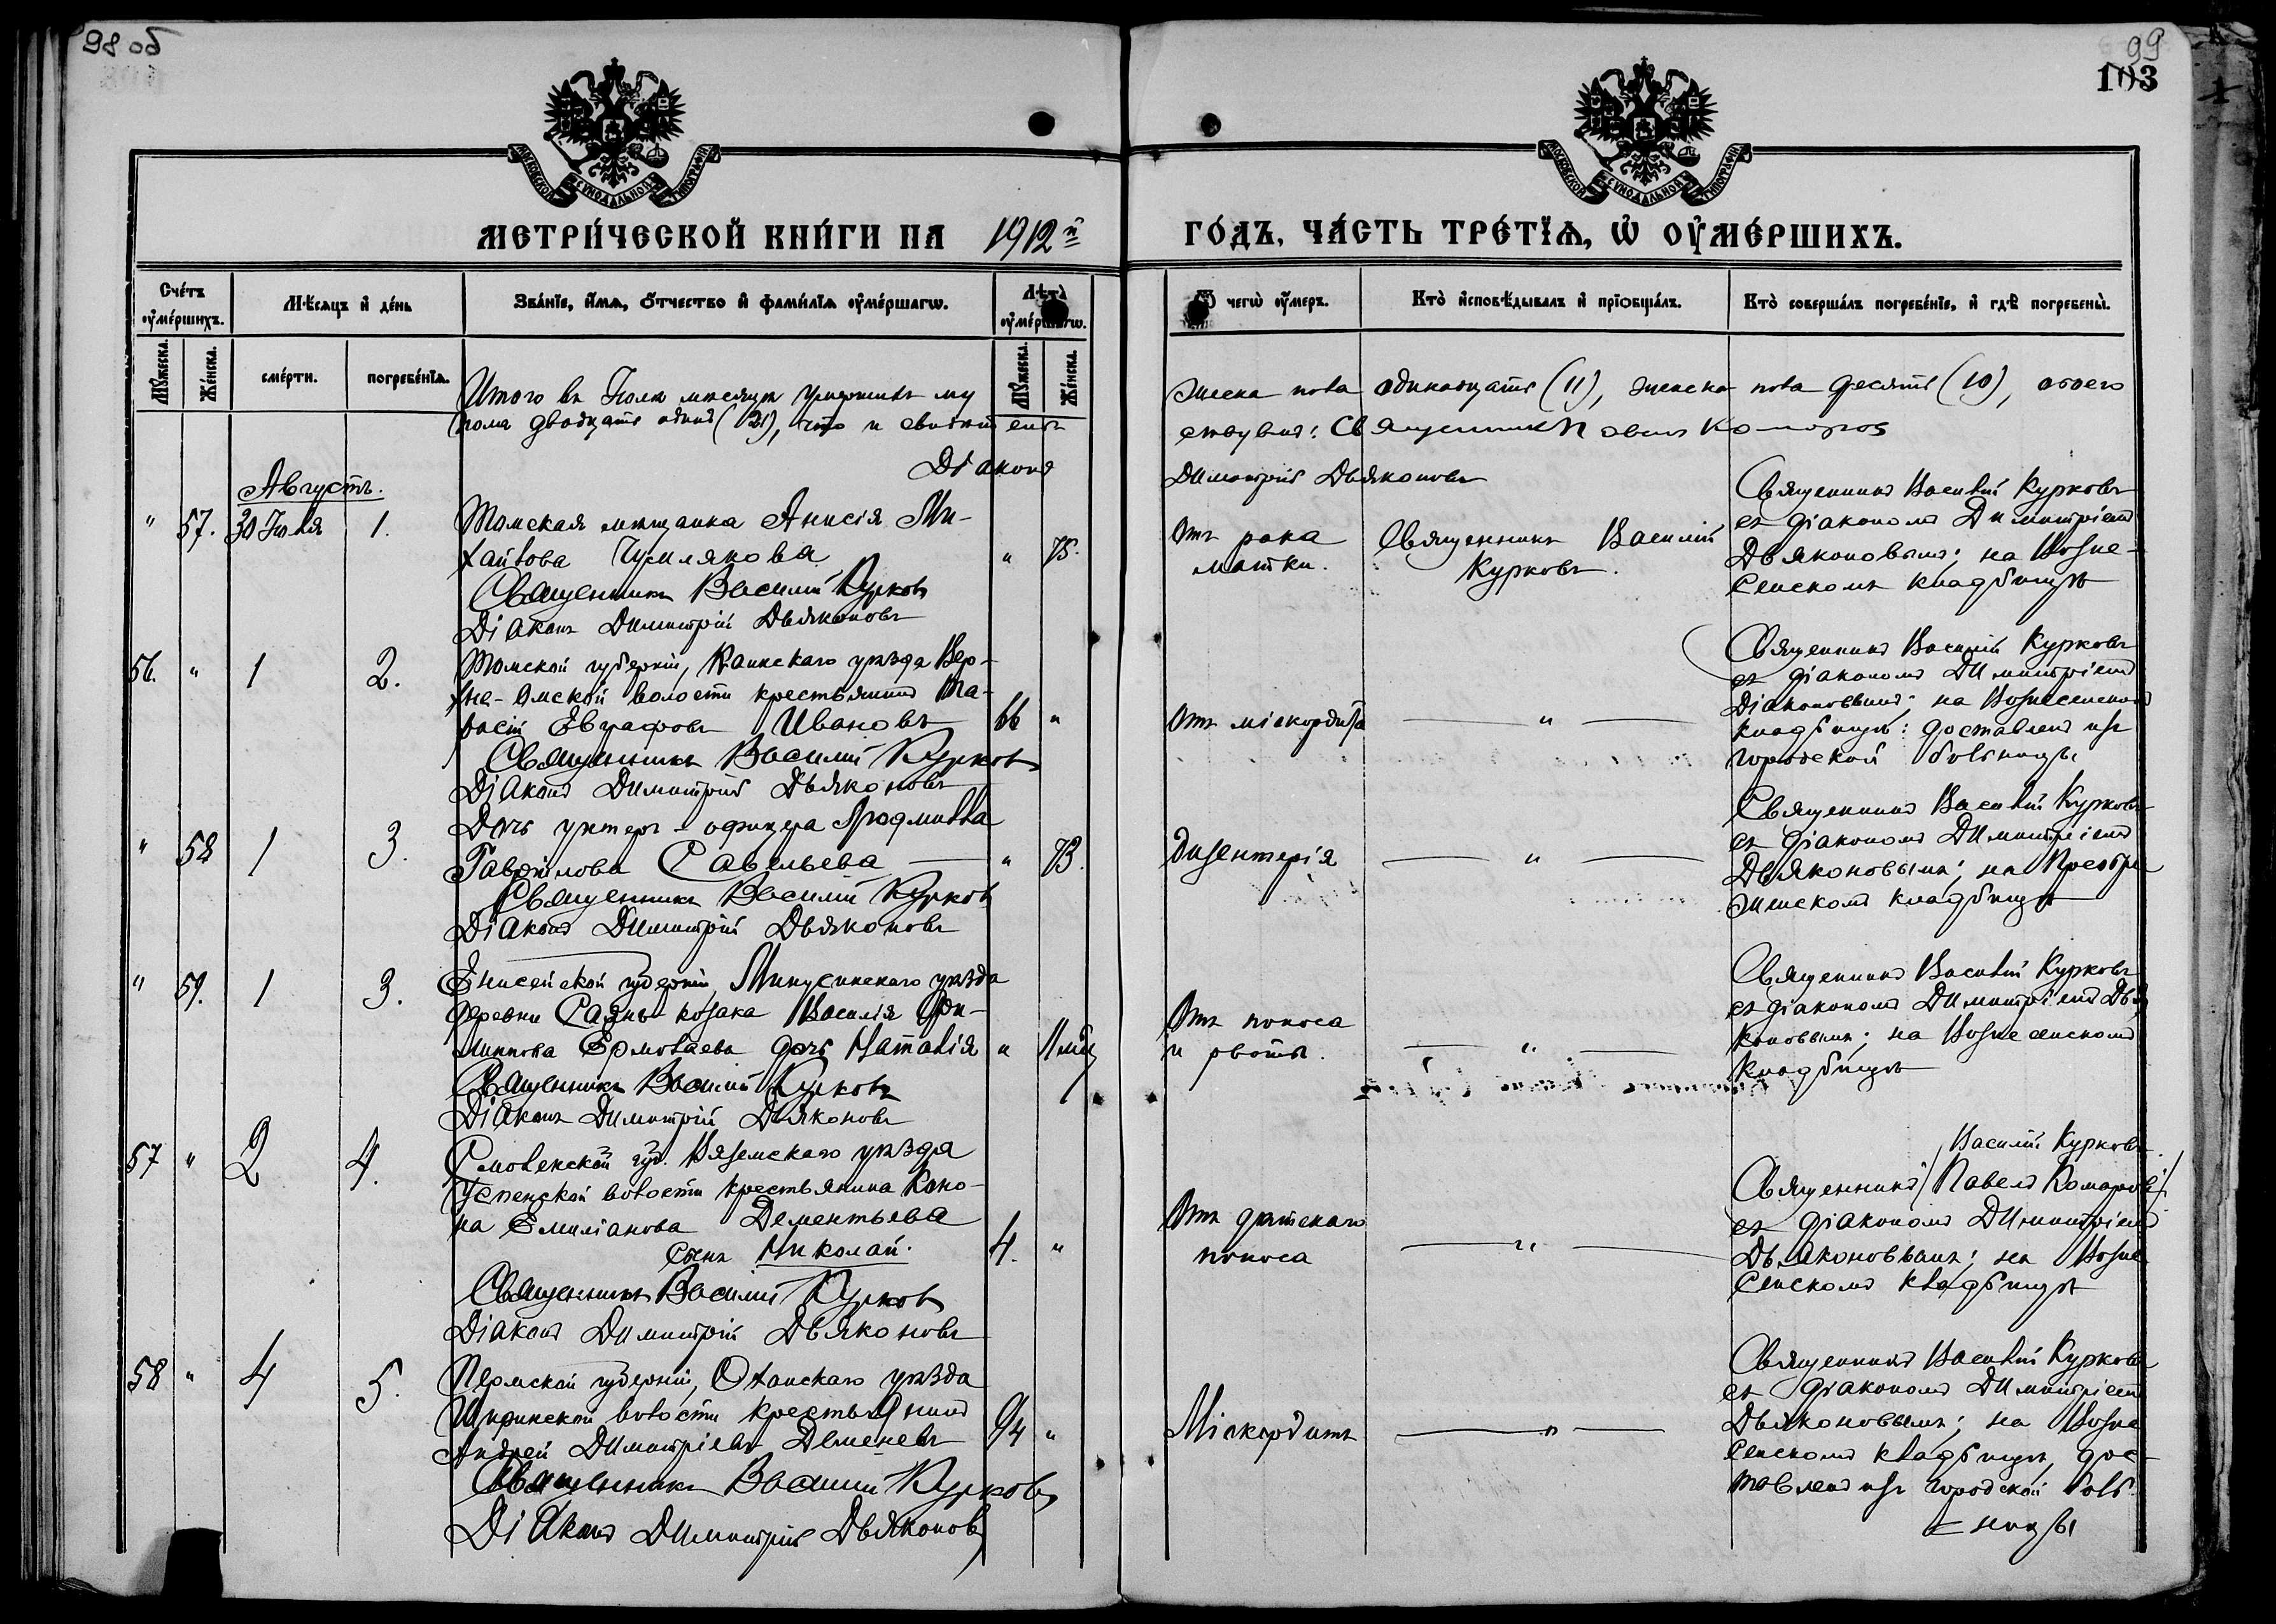 98 об
99
103
МОСКОВСКОЙ СѴНОДАЛЬНОЙ ТИПОГРАФІИ
МОСКОВСКОЙ СѴНОДАЛЬНОЙ ТИПОГРАФІИ
МЕТРИ́ЧЕСКОЙ КНИ́ГИ НА 1912й
ГО́ДЪ, ЧА́СТЬ ТРЕ́ТІѦ, Ѡ ОУМЕ́РШИХЪ.
Сче́тъ оумершихъ.
Мѣсяцъ и де́нь
Зва́ніе, и́мя, о́тчество и фами́лія оуме́ршагѡ.
Лѣта̀ оуме́ршагѡ.
Ѿ чегѡ̀ оу́меръ.
Кто̀ исповѣ́дывалъ и пріобща́лъ.
Кто̀ соверша́лъ погребе́ніе, и гдѣ̀ погребены̀.
Му́жеска.
Же́нска.
сме́рти.
погребе́нія.
Му́жеска.
Же́нска.
Итого въ Іюлѣ мѣсяцѣ умершихъ му
жеска пола одинадцать (11), женска пола десять (10), обоего
пола двадцать одинъ (21), что и свидѣтель
ствуютъ: Священникъ Павелъ Комаровъ
Діаконъ
Димитрій Дьяконовъ
Августъ.
" 57. 30 Іюля 1.
Томская мѣщанка Анисія Ми-
хайлова Чумлякова " 75.
Священникъ Василій Курковъ
Діаконъ Димитрій Дьяконовъ
Отъ рака
матки.
Священникъ Василій
Курковъ.
Священникъ Василій Курковъ
съ діакономъ Димитріемъ
Дьяконовымъ; на Возне-
сенскомъ кладбищѣ
56. " 1 2.
Томской губерніи, Каинскаго уѣзда Вер-
хне-Омской волости крестьянинъ
Евграфовъ Ивановъ 66 "
Священникъ Василій Курковъ
Діаконъ Димитрій Дьяконовъ
Отъ міокордита
"
Священникъ Василій Курковъ
съ діакономъ Димитріемъ
Діаконовымъ; на Вознесенскомъ
кладбищѣ: доставленъ изъ
городской больницы
" 58 1 3.
Дочь унтеръ-офицера Людмилла
Гаврілова Савельева "
Священникъ Василій Курковъ
Діаконъ Димитрій Дьяконовъ
Дизентерія
"
Священникъ Василій Курковъ
съ діакономъ Димитріемъ
Дьяконовымъ; на Преобра
женскомъ кладбищѣ
" 59. 1 3.
Енисейской губерніи, Минусинскаго уѣзда
деревни Саянъ козака Василія Фи-
липпова Ермолаева дочь Наталія " 11 мѣс
Священникъ Василій Курковъ
Діаконъ Димитрій Дьяконовъ
Отъ поноса
и рвоты.
"
Священникъ Василій Курковъ
съ діакономъ Димитріемъ Дья
коновымъ; на Вознесенскомъ
кладбищѣ
57 " 2 4.
Смоленской губ. Вяземскаго уѣзда
Успенской волости крестьянина Коно-
на Емиліанова Дементьева
сынъ Николай. 4. "
Священникъ Василій Курковъ
Діаконъ Димитрій Дьяконовъ
Отъ дѣтскаго
поноса
"
Василій Курковъ.
Священникъ /Павелъ Комаровъ/
съ діакономъ Димитріемъ
Дьяконовымъ; на Возне
сенскомъ кладбищѣ
58 " 4 5.
Пермской губерніи, Оханскаго уѣзда
волости крестьянинъ
Андрей Димитріевъ Деменевъ 94 "
Священникъ Василій Курковъ
Діаконъ Димитрій Дьяконовъ
Міокордитъ
"
Священникъ Василій Курковъ
съ діакономъ Димитріемъ
Дьяконовымъ; на Возне
сенскомъ кладбищѣ, дос-
тавленъ изъ городской боль
= ницы